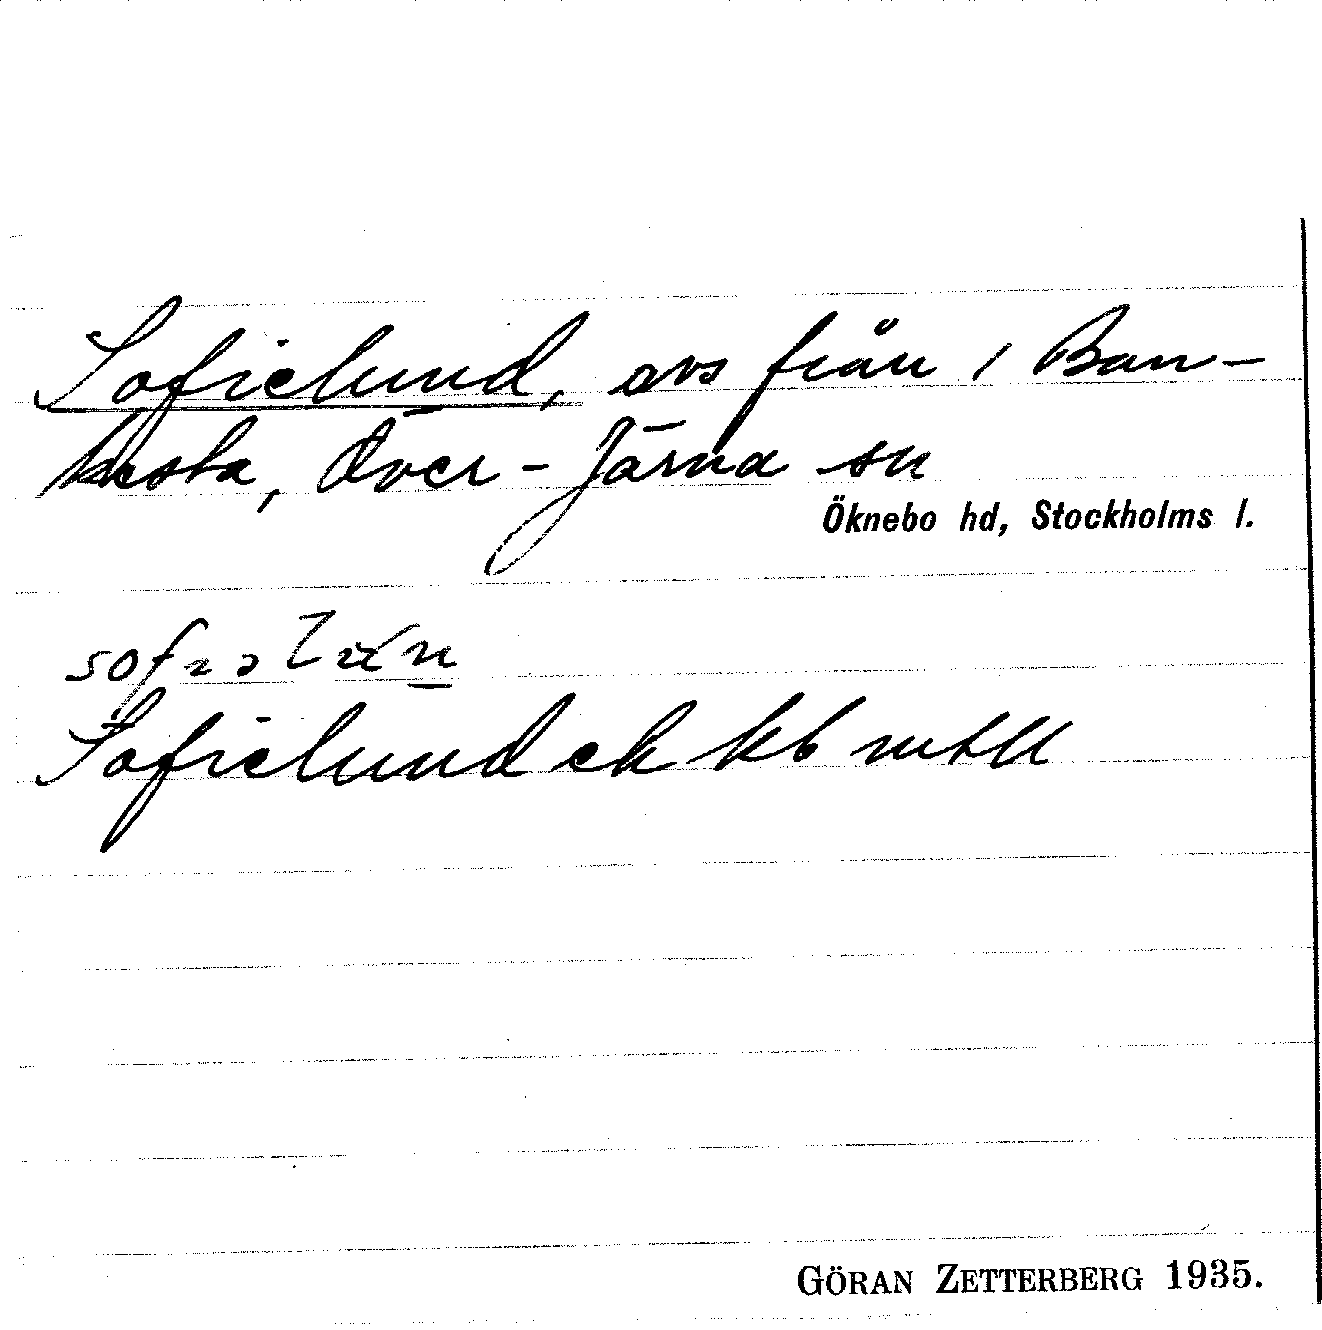 Sofielund, avs från 1 Ban-
kesta, Över-Järna sn
Öknebo hd, Stockholms l.
Sofielund ek kb mtll
GÖRAN ZETTERBERG 1935.